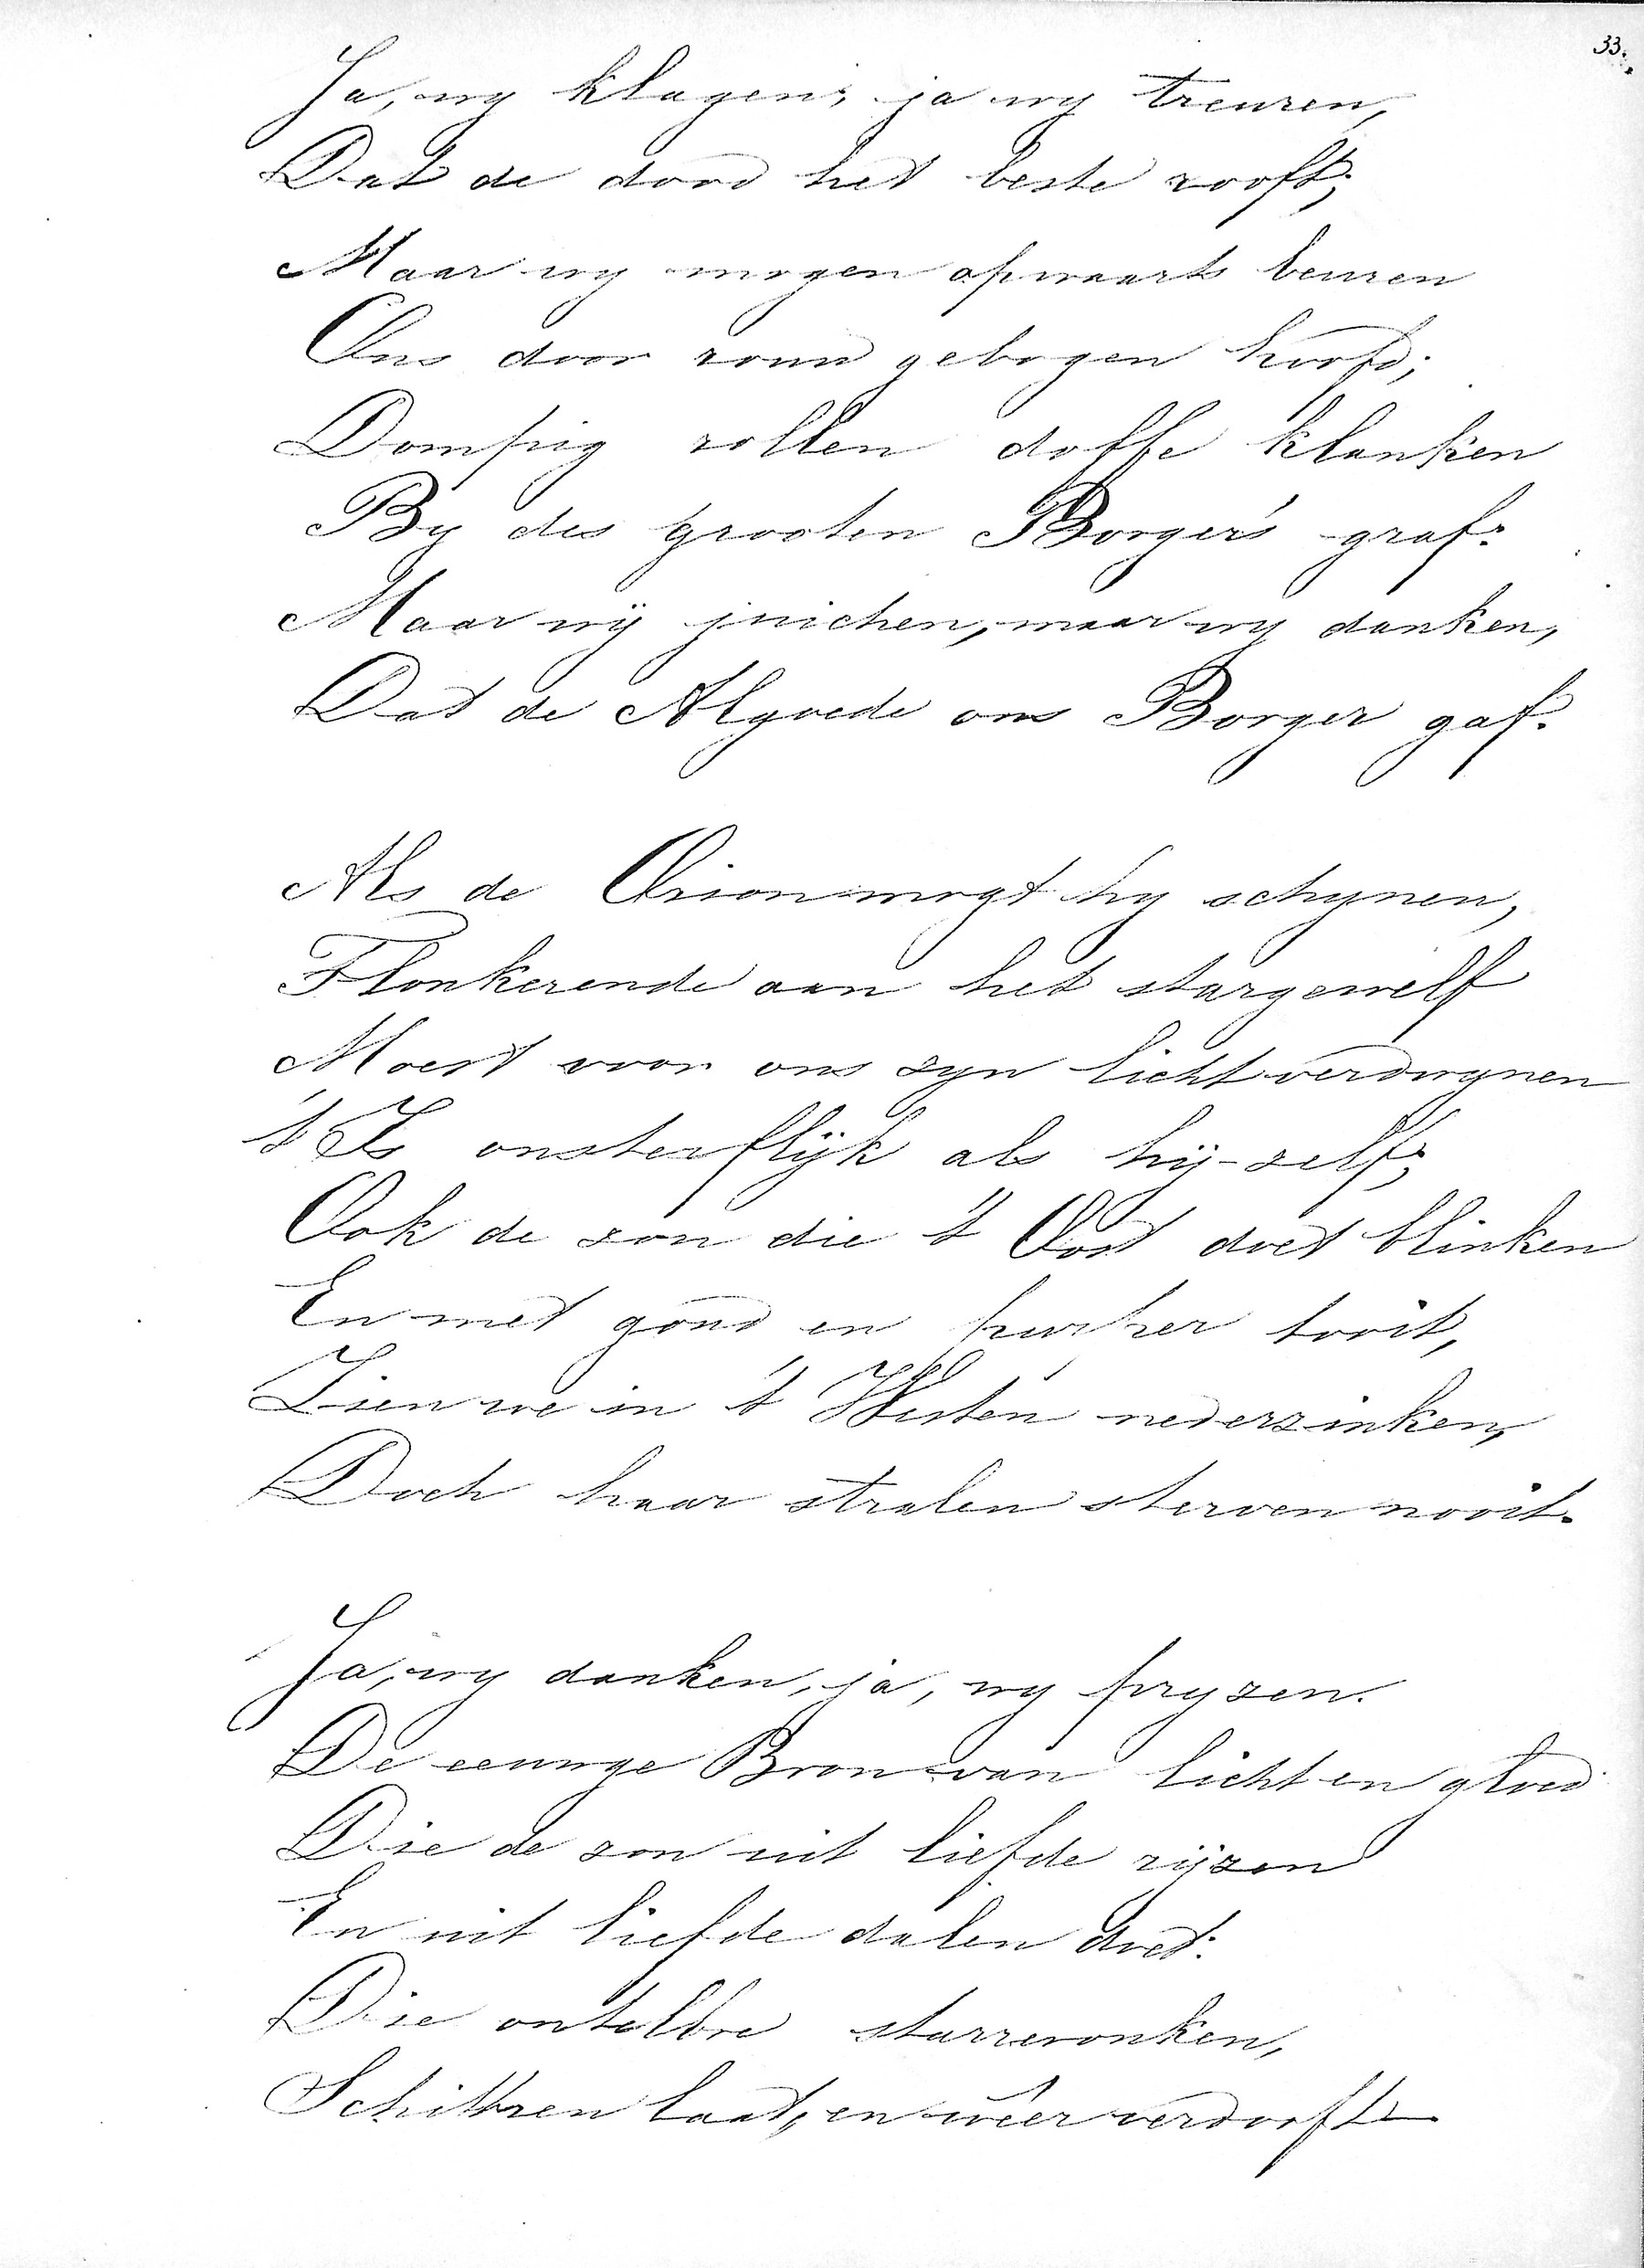 33.
Ja, wy klagen; ja wy treuren,
Dat de dood het beste rooft;
Maar wy mogen opwaarts beuren
Ons door rouw gebogen hoofd;
Dompig rollen doffe klanken
By des grooten Borger's graf.
Maar wij juichen, maar wy danken,
Dat de Algoede ons Borger gaf.
Als de Orion mogt hy schynen,
Flonkerende aan het stargewelf
Moest voor ons zyn licht verdwynen
't Is onsterflijk als hij-zelf;
Ook de zon die 't Oost doet blinken
En met goud en purper tooit,
Zien we in 't Westen nederzinken,
Doch haar stralen sterven nooit.
Ja, wy danken, ja, wy pryzen.
De eeuwge Bron van licht en gloed
Die de zon uit liefde rijzen
En uit liefde dalen doet.
Die ontelbre starrevonken,
Schittren laat, en wêer verdooft